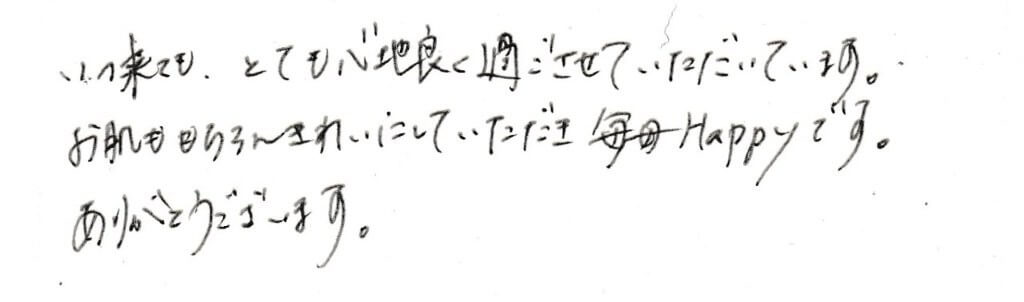 いつ来ても、とても心地良く過ごさせていただいています。
お肌ももちろんきれいにしていただき毎日Happyです。
ありがとうございます。